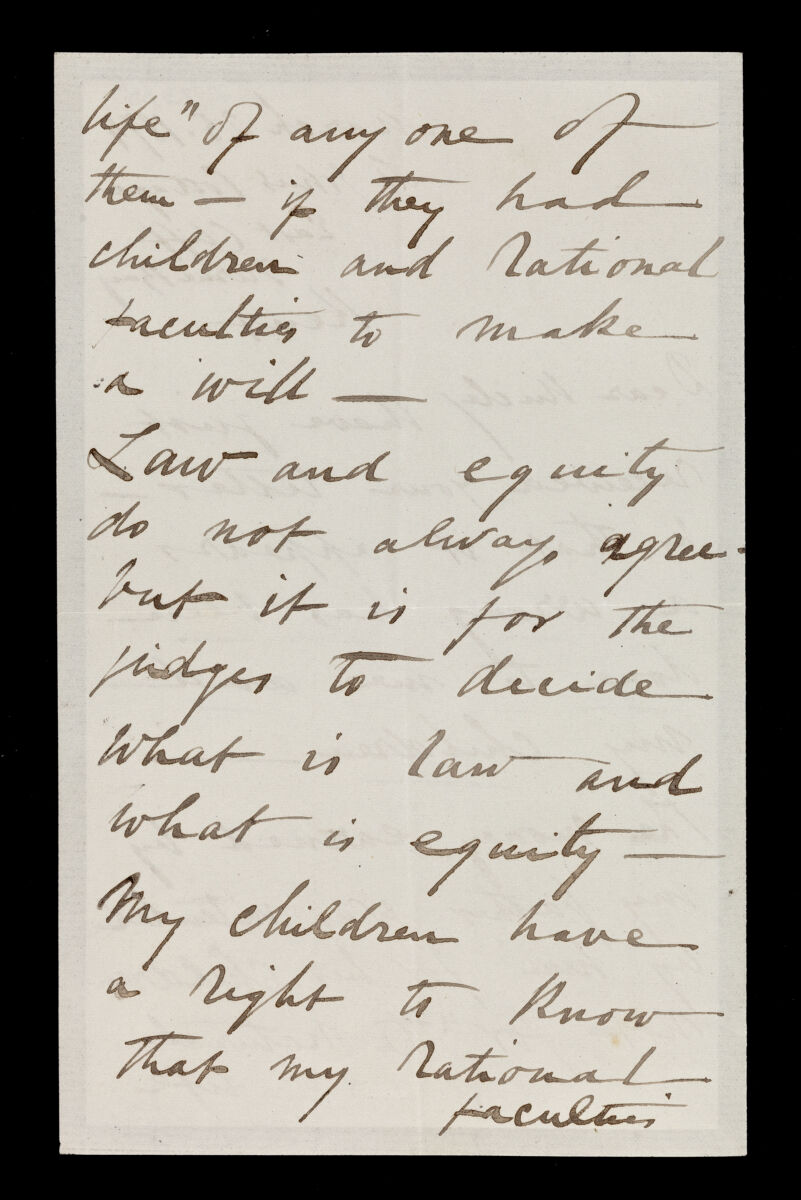 life" of any one of
them — if they had
children and rational
faculties to make
a will —
Law and equity
do not always agree -
but it is for the
judges to decide
what is law and
what is equity —
My children have
a right to know
that my rational
faculties